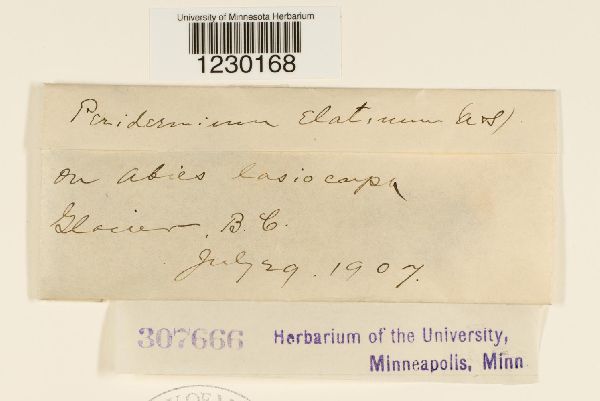 University of Minnesota Herbarium
1230168
Peridermium Elatinum (A&S).
on Abies lasiocarpa
Glacier, B.C.
July 29. 1907.
307666 Herbarium of the University,
Minneapolis, Minn